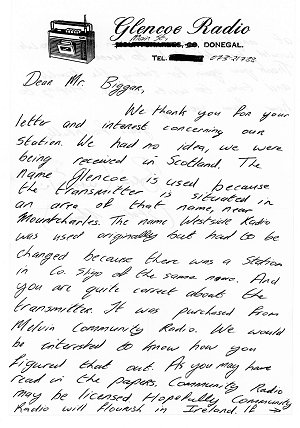 Glencoe Radio
Main St.,
MOUNTCHARLES, CO. DONEGAL.
TEL. 073-21732
Dear Mr. Biggar,
We thank you for your
letter and interest concerning our
station. We had no idea, we were
being received in Scotland. The
name Glencoe is used because
the transmitter is situated in
an area of that name, near
Mountcharles. The name Westside Radio
was used originally but had to be
changed because there was a Station
in Co. Sligo of the same name. And
you are quite correct about the
transmitter. It was purchased from
Melvin Community Radio. We would
be interested to know how you
figured that out. As you may have
read in the papers, Community Radio
may be licensed. Hopefully Community
Radio will flourish in Ireland. If →